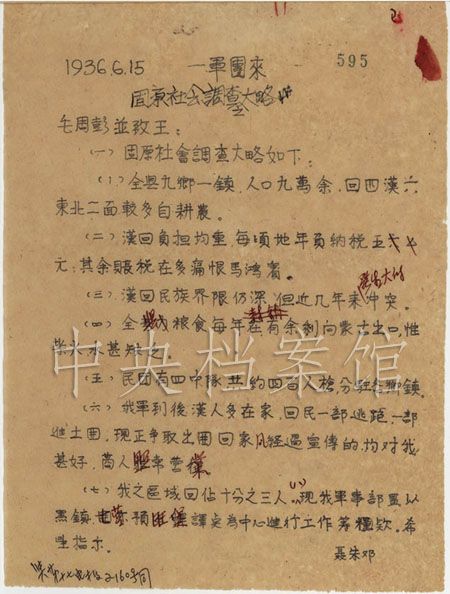 1936.6.15 一軍團來 595
固原社会調查大略
毛周彭並致王：
（一）固原社會調查大略如下：
（1.全县九鄉一鎮，人口九萬余，回四漢六
東北二面較多自耕農。
（二）漢回負担均重，每頃地年負納税五
元；其余賬税在多痛恨馬鴻賓。
（三）漢回民族界限仍深，但近几年来冲突。
（四）全 粮食每年在有余剩向蒙古出口，惟
柴火水甚缺乏。
（五）民团有四中隊，共約四百人槍，分駐各鄉鎮。
（六）我軍到後漢人多在家，回民一部逃跑，一部
進土囲，現正争取出囲回家凡經過宣傳的，均对我
甚好，商人 常營業
（七）我之區域回佔十分之三人。現我軍事部置以
黑鎮, 預旺堡 為中心進行工作籌糧欵。希
望指示。
聶朱邓
中央档案馆